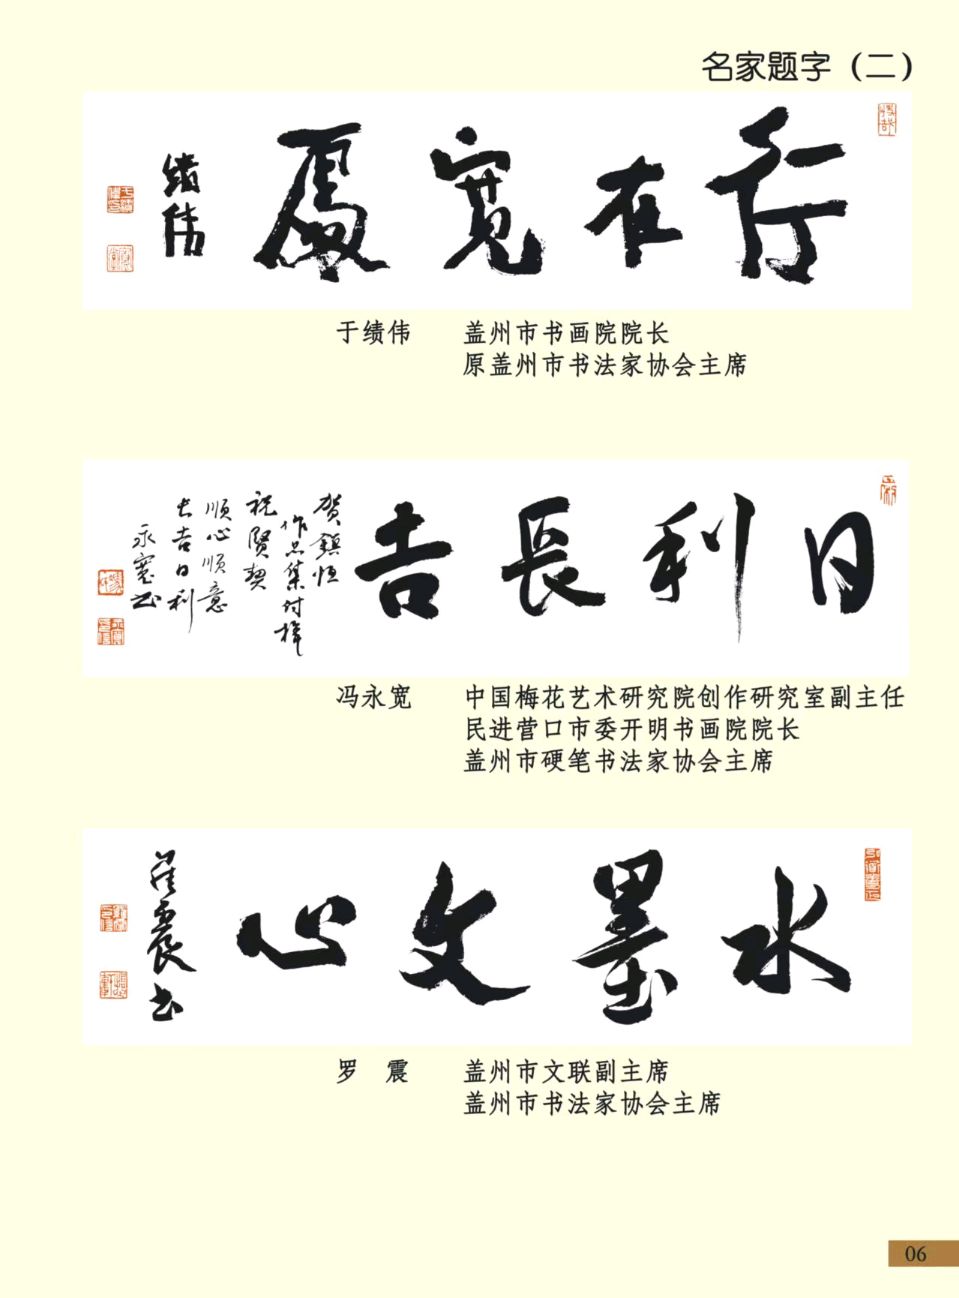 名家题字（二）
行在寬處
绩伟
于绩伟 盖州市书画院院长
原盖州市书法家协会主席
日利長吉
贺鎮恒
作品集付梓
祝賢契
順心順意
长吉日利
永寬书
冯永宽 中国梅花艺术研究院创作研究室副主任
民进营口市委开明书画院院长
盖州市硬笔书法家协会主席
水墨文心
罗震书
罗 震 盖州市文联副主席
盖州市书法家协会主席
06